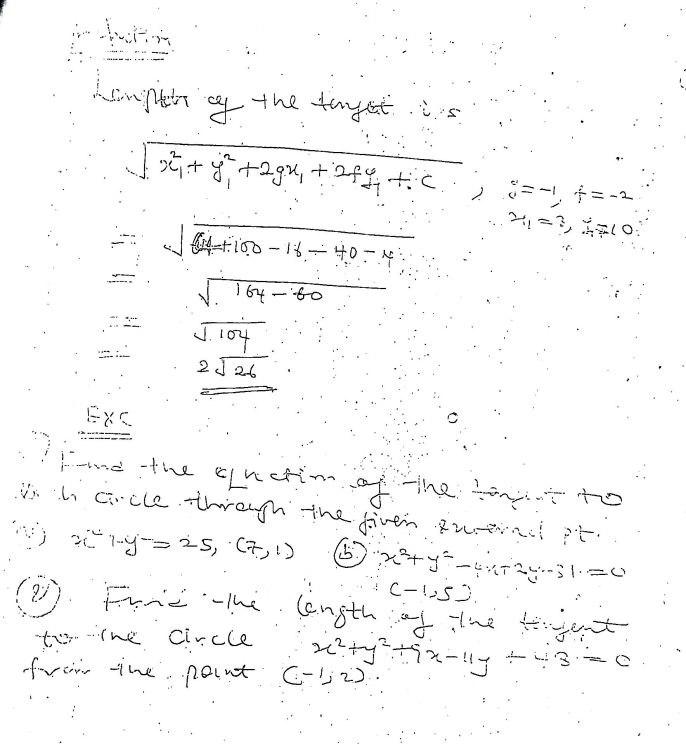 Length of the tangent is
√x₁² + y₁² + 2gx₁ + 2fy₁ + c , g=-1, f=-2
x₁=8, y₁=10
= √64+100-16-40-4
= √164-60
= √104
= 2√26
EXC
Find the equation of the tangent to
circle through the given external pt.
x²+y²=25, (7,1) (b) x²+y²-4x+2y-31=0
(-1,5)
(2) Find the length of the tangent
to the circle x²+y²+9x-11y+43=0
from the point (-1,2).